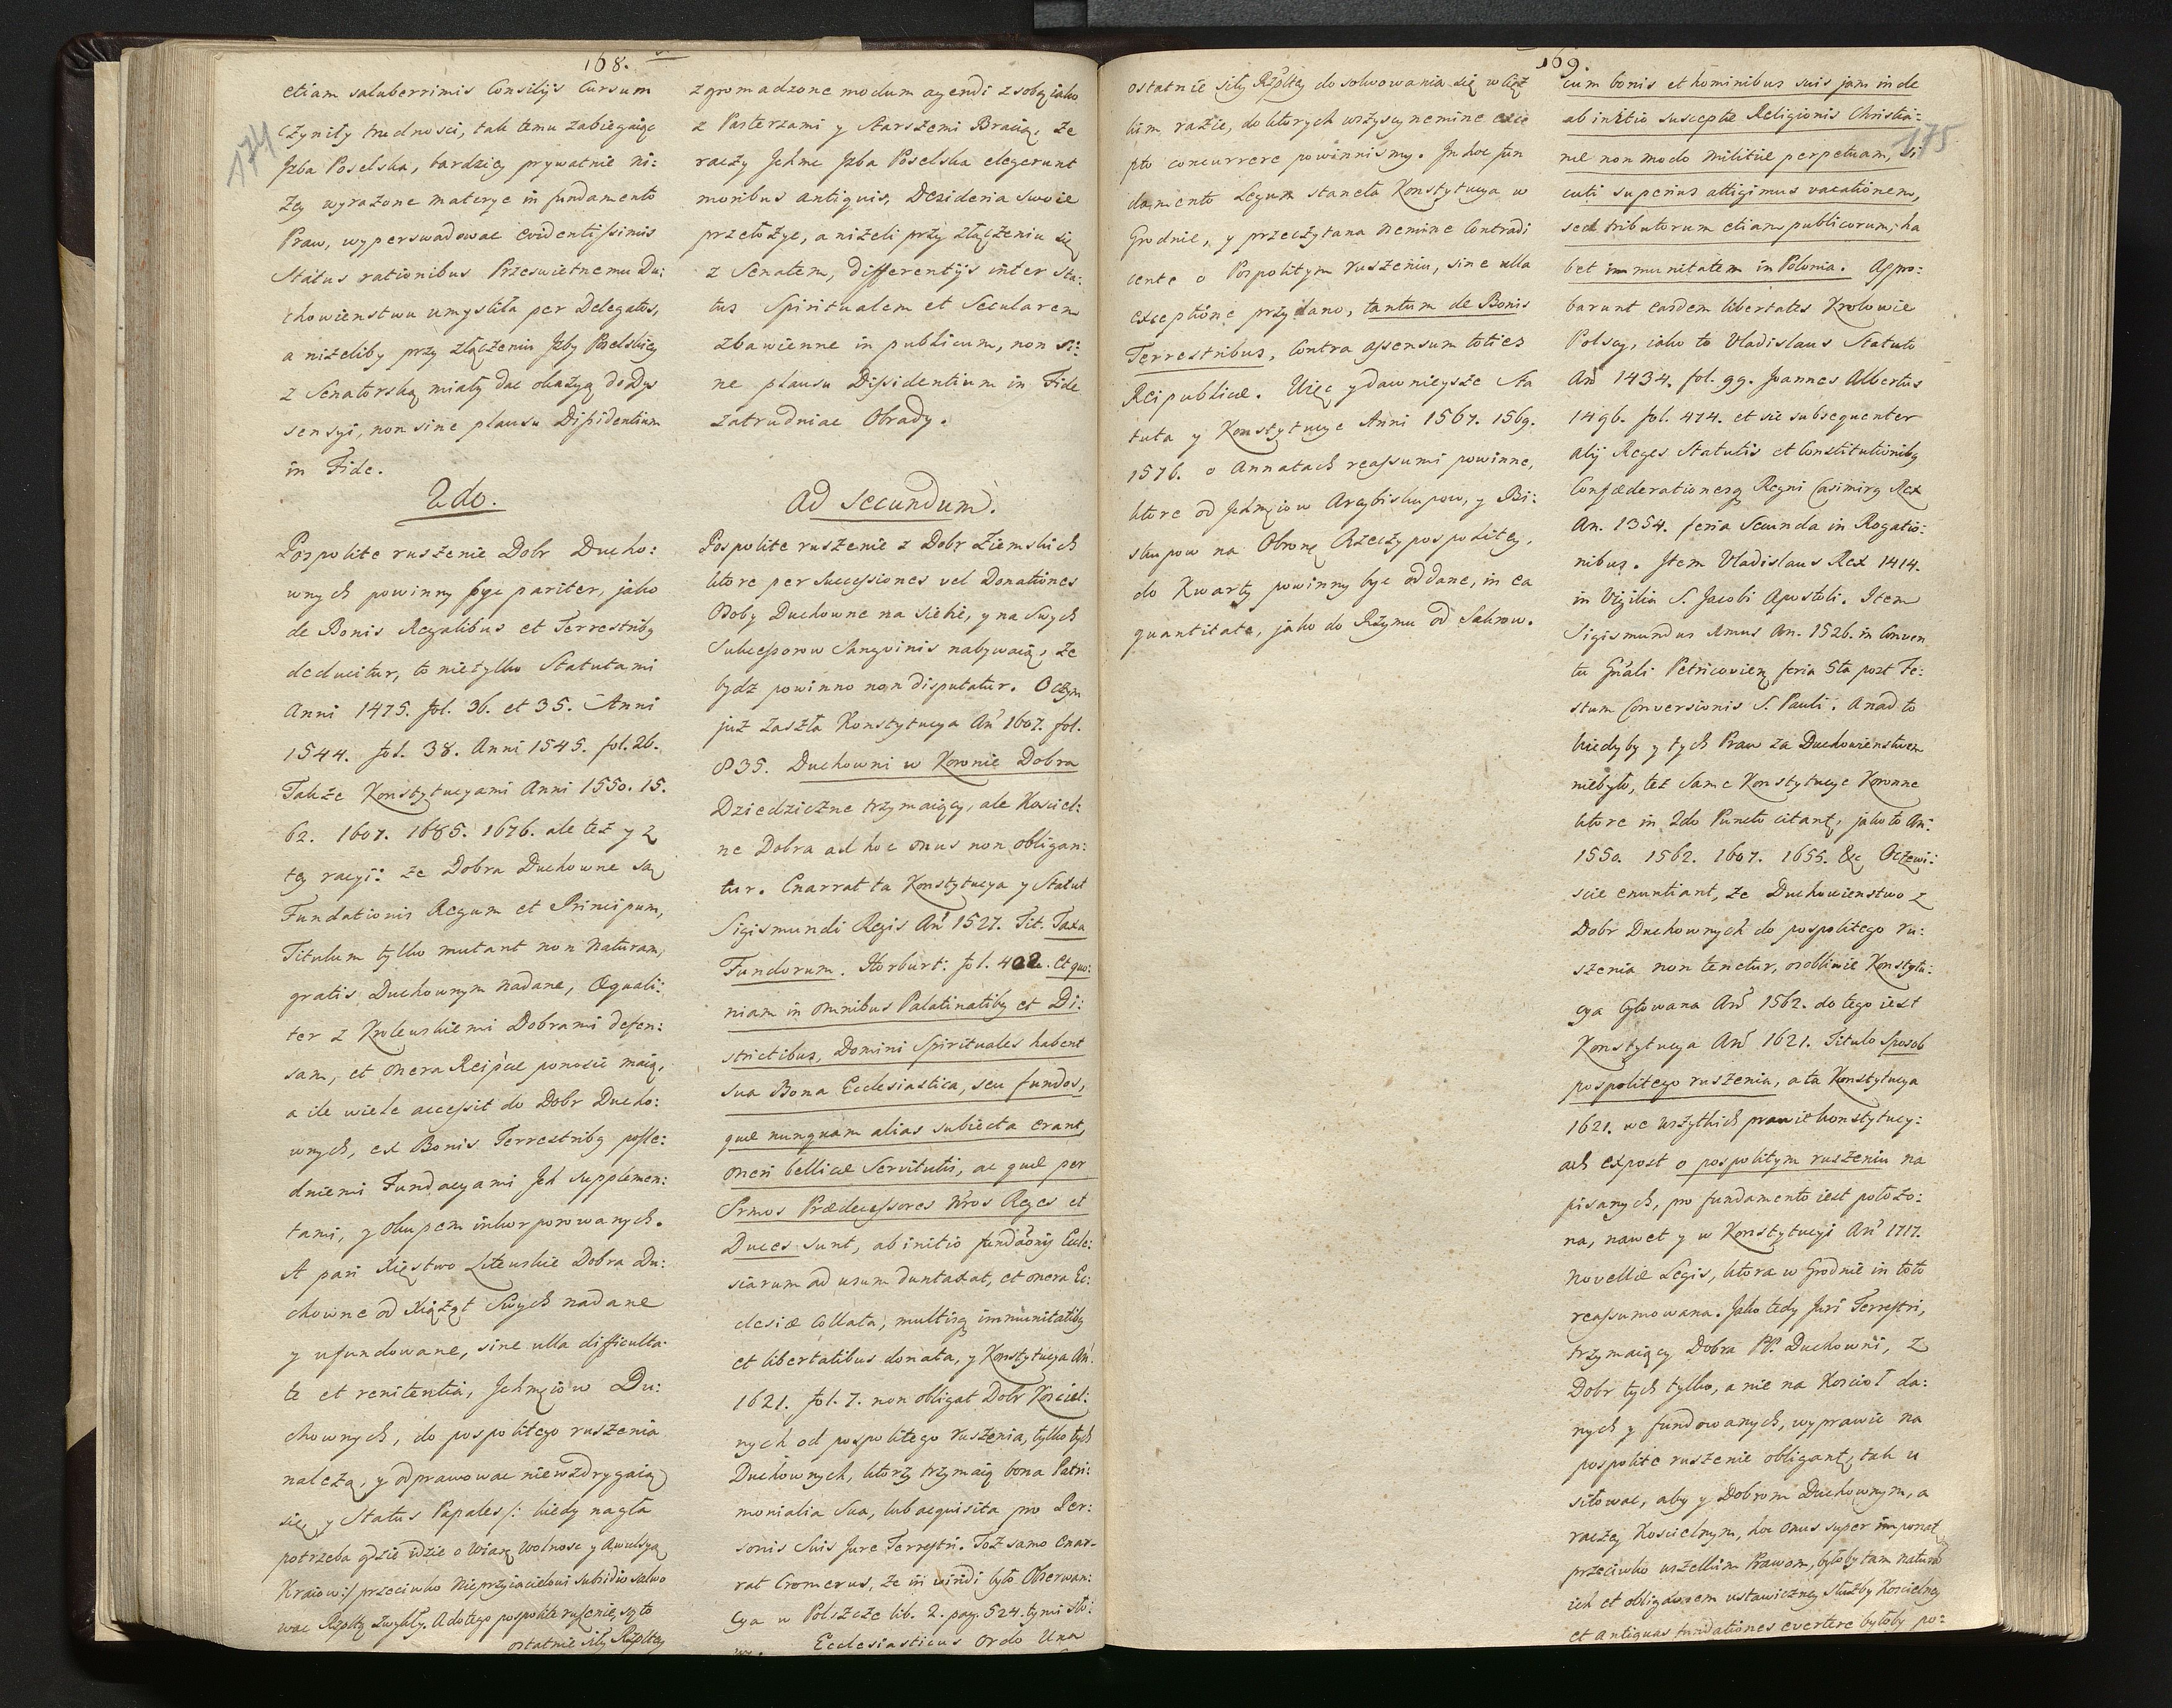 168.
174
etiam saluberrimis Consilijs Cursum
czyniły trudnosci, tak temu zabiegaiąc
Jzba Poselska, bardziey prywatnie ni:
żey wyrażone materye in fundamento
Praw, wyperswadowac evidentissimis
Status rationibus Przeswietnemu Du:
chowienstwu umysliła per Delegatos,
a niżeliby przy złączeniu Jzby Poselskiey
z Senatorską miały dac okazyą do Dys
sensyi, non sine plausu Dissidentium
in Fide.
2do.
Pospolite ruszenie Dobr Ducho:
wnych powinny bye pariter, jako
de Bonis Regalibus et Terrestriby
deducitur, to nietylko Statutami
Anni 1475. fol. 36. et 35. Anni
1544. fol. 38. Anni 1545. fol. 26.
Takze Konstytucyami Anni 1550. 15.
62. 1607. 1685. 1676. ale też y z
tey racyi: ze Dobra Duchowne są
Fundationis Regum et Principum,
Titulum tylko mutant non Naturam,
gratis Duchownym nadane, Æquali:
ter z Krolewskiemi Dobrami defen:
sam, et onera Reipcæ ponosic maią,
a ile wiele accessit do Dobr Ducho:
wnych, ex Bonis Terrestriby posle:
dniemi Fundacyami Jch supplemen:
tami, y okupem inkorporowanych.
A pari Xięstwo Litewskie Dobra Du:
chowne od Xiążąt Swych nadane
y ufundowane, sine ulla difficulta:
te et renitentia, Jchmciow Du:
chownych, do pospolitego ruszenia
należą, y odprawowac niewzdrygaią
się, y Status Papales /: kiedy nagła
potrzeba gdzie idzie o Wiarę Wolnosc y Awulsyą
Kraiow :/ przeciwko Nieprzyiacielowi subsidio salwo
wac Rzpltę zwykły. A do tego pospolite ruszenie, są to
ostatnie siły Rzpltey
zgromadzone modum agendi z sobą iako
z Pasterzami y Starszemi Bracią, że
raczy Jchmc Jzba Poselska elegerunt
moribus antiquis, Desideria Swoie
przełożyc, a niżeli przy złączeniu się
z Senatem, differentijs inter Sta:
tus Spiritualem et Secularem
zbawienne in publicum, non si:
ne plausu Dissidentium in Fide
zatrudniac Obrady.
Ad Secundum.
Pospolite ruszenie z Dobr Ziemskich
ktore per Successiones vel Donationes
Osoby Duchowne na siebie, y na Swych
Sukcessorow Sangvinis nabywaią, że
bydz powinno non disputatur. O czym
już zaszła Konstytucya An 1607. fol.
835. Duchowni w Koronie Dobra
Dziedziczne trzymaiący, ale Koscieł:
ne Dobra ad hoc onus non obligan:
tur. Enarrat ta Konstytucya y Statut
Sigismundi Regis An 1527. Tit. Taxa
Fundorum. Herburt: fol. 402. Et quo:
niam in omnibus Palatinatiby et Di:
strictibus, Domini Spirituales habent
sua Bona Ecclesiastica, seu fundos,
quæ nunquam alias subiecta erant,
oneri bellicæ Servitutis, ac quæ per
Srmos Prædecessores Nros Reges et
Duces sunt, ab initio fundaonis Eccle:
siarum ad usum duntaxat, et onera Ec:
clesiæ collata, multisq immunitatiby
et libertatibus donata, y Konstytucya An
1621. fol. 7. non obligat Dobr Koscieł:
nych od pospolitego ruszenia, tylko tych
Duchownych, ktorzy trzymaią bona Patri:
monialia Sua, lub acquisita pro Per:
sonis Suis Jure Terrestri. Toż samo Enar:
rat Cromerus, że in viridi była Obserwan:
cya w Polszcze lib. 2. pag. 524. tymi sło:
Ecclesiasticus Ordo Una
169.
175
ostatnie siły Rzpltey do solwowania się w cięż
kim razie, do ktorych wszyscy nemine exce
pto concurrere powinnismy. Jn hoc fun
damento Legum stanęła Konstytucya w
Grodnie, y przeczytana Nemine Contradi
cente o Pospolitym ruszeniu, sine ulla
exceptione przydano, tantum de Bonis
Terrestribus, Contra assensum toties
Reipublicæ. Więc y dawnieysze Sta
tuta y Konstytucye Anni 1567. 1569.
1576. o Annatach reassumi powinne,
ktore od Jchmciow Arcybiskupow, y Bi:
skupow na Obronę Rzeczypospolitey,
do Kwarty powinny byc oddane, in ea
quantitate, jako do Rzymu od Sakrow.
cum bonis et hominibus suis jam inde
ab initio susceptæ Religionis Christia:
næ non modo Militiæ perpetuam, Si
cuti superius attigimus vacationem,
sed tributorum etiam publicorum, ha
bet immunitatem in Polonia. Appro:
barunt easdem libertates Krolowie
Polscy, iako to Vladislaus Statuto
An 1434. fol. 99. Joannes Albertus
1496. fol. 474. et sic subsequenter
alij Reges Statutis et Constitutioniby
Confæderationesq Regni Casimirq Rex
An. 1354. feria Secunda in Rogatio:
nibus. Jtem Vladislaus Rex 1414.
in Vigilia S. Jacobi Apostoli. Item
Sigismundus Imus An. 1526. in Conven
tu Gnali Petricovien feria 5ta post Fe:
stum Conversionis S. Pauli. A nad to
kiedyby y tych Praw za Duchowienstwem
niebyło, też same Konstytucye Koronne
ktore in 2do Puncto citant, jako to An:
1550. 1562. 1607. 1655. &c Oczewi:
scie enuntiant, że Duchowienstwo z
Dobr Duchownych do pospolitego ru:
szenia non tenetur, osobliwie Konstytu:
cya Cytowana An 1562. do tego iest
Konstytucya An 1621. Titulo Sposob
pospolitego ruszenia, a ta Konstytucya
1621. we wszytkich prawie konstytucy:
ach expost o pospolitym ruszeniu na
pisanych, pro fundamento iest położo:
na, nawet y w Konstytucyi An 1717.
Novellæ Legis, ktora w Grodnie in toto
reassumowana. Jako tedy Juri Terrestri,
trzymaiący Dobra PP. Duchowni, z
Dobr tych tylko, a nie na Koscioł da:
nych y fundowanych, wyprawic na
pospolite ruszenie obligant, tak u
siłowac, aby y Dobrom Duchownym, a
raczey Koscielnym, hoc onus super imponat
przeciwko wszelkim Prawom, byłoby tam naturā
ich et obligationem ustawiczney służby Koscielney
et Antiquas fundationes evertere byłoby po: